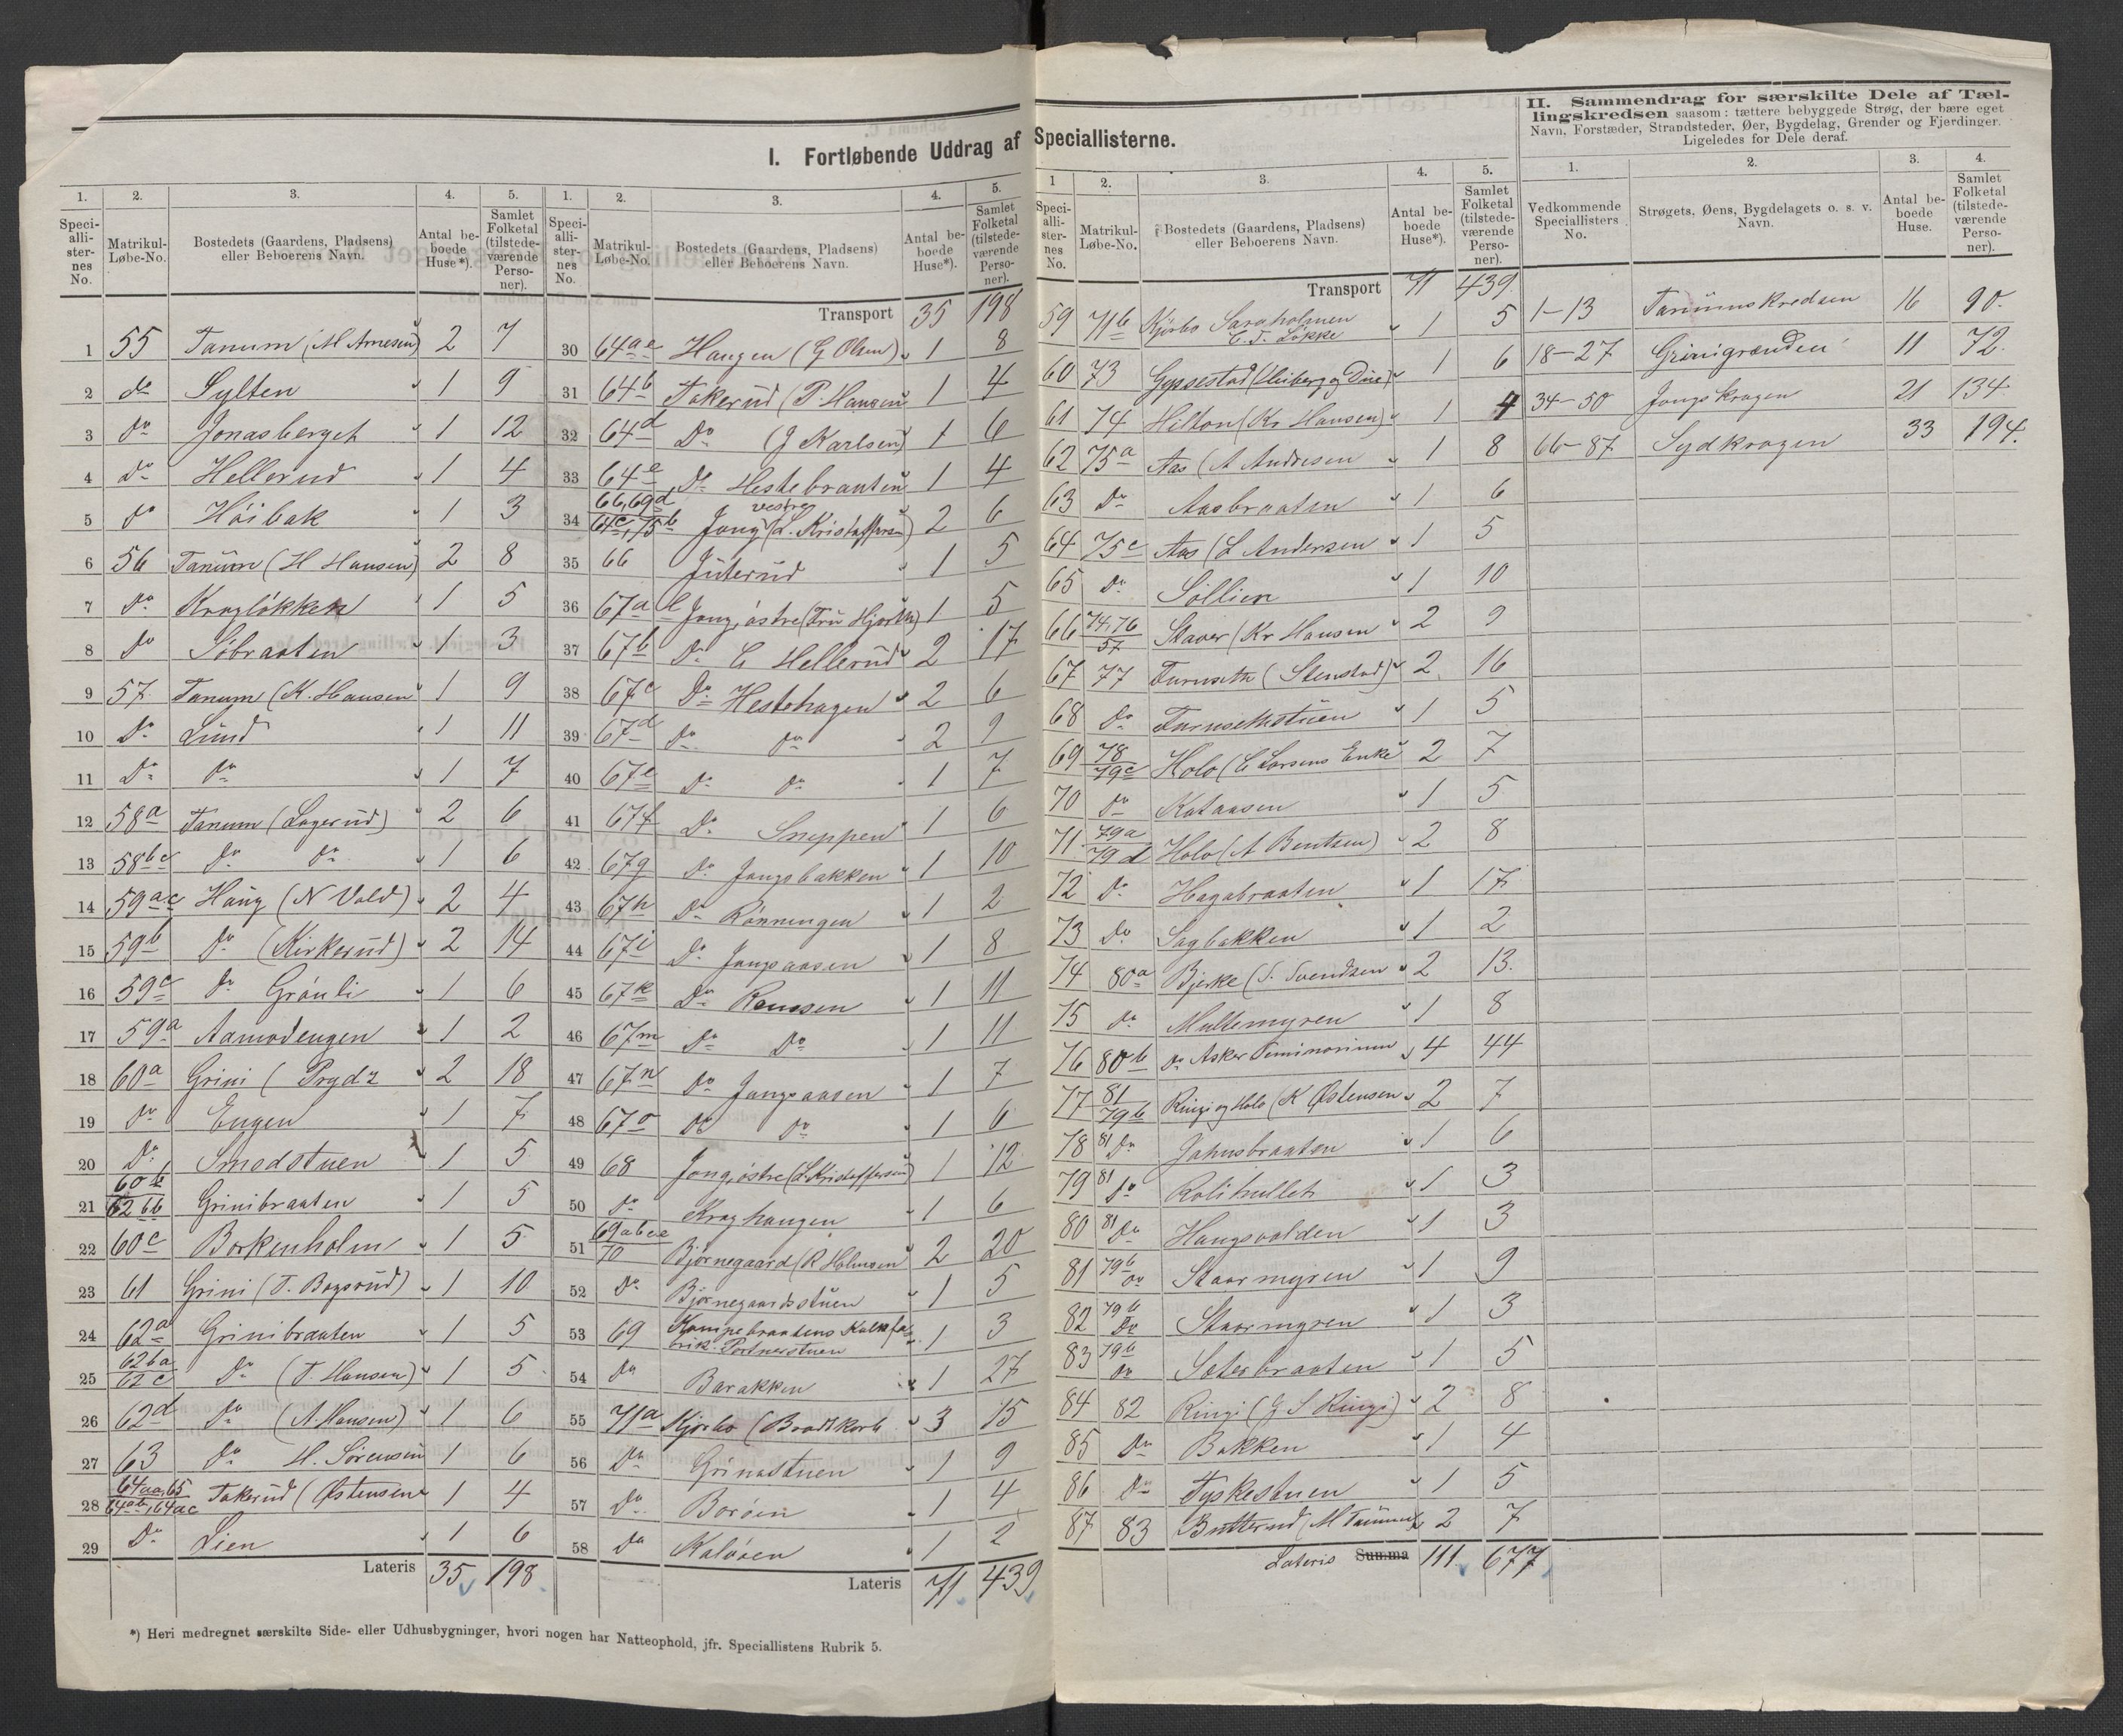 I. Fortløbende Uddrag af Speciallisterne.
1. 2. 3. 4. 5.
Speciallisternes No. Matrikul-Løbe-No. Bostedets (Gaardens, Pladsens) eller Beboerens Navn. Antal beboede Huse*). Samlet Folketal (tilstedeværende Personer).
1 55 Tanum (M Arnesen) 2 7
2 do Sylten 1 9
3 Do Jonasberget 1 12
4 Do Hellerud 1 4
5 Do Höibak 1 3
6 56 Tanum (H Hansen) 2 8
7 Do Kragløkken 1 5
8 Do Söbraaten 1 3
9 57. Tanum (K. Hansen 1 9
10 Do Lund 1 11
11 Do Do 1 7
12 58a Tanum (Lagerud) 2 6
13 58bc Do Do 1 6
14 59ac Haug (N Vold) 2 4
15 59b Do (Kirkerud) 2 14
16 59c Do Grönli 1 6
17 59a Aamodengen 1 2
18 60a Grini (Prydz 2 18
19 Do Engen 1 7
20 Do Smedstuen 1 5
21 60b 62bb Grinibraaten 1 5
22 60c Borkenholm 1 5
23 61 Grini (T. Bagsrud) 1 10
24 62a Grinibraaten 1 5
25 62ba 62c Do (T. Hansen) 1 5
26 62d Do (A. Hansen) 1 6
27 63 Do H. Sörensen 1 6
28 64aa, 65 64ab, 64ac Takerud (Østensen 1 4
29 Do Lien 1 6
Lateris 35 198
1. 2. 3. 4. 5.
Speciallisternes No. Matrikul-Løbe-No. Bostedets (Gaardens, Pladsens) eller Beboerens Navn. Antal beboede Huse*). Samlet Folketal (tilstedeværende Personer).
Transport 35 198
30 64ae Haugen (G Olsen) 1 8
31 64b Takerud (P. Hansen 1 4
32 64d Do (J Karlsen) 1 6
33 64e Do Hestebraaten 1 4
34 66, 69d 64c, 75b Jong vestre (L. Kristoffersen) 2 6
35 66 Juterud 1 5
36 67a l Jong østre (Fru Hjorth) 1 5
37 67b Do C Hellerud 2 17
38 67c Do Hestehagen 2 6
39 67d Do Do 2 9
40 67e Do Do 1 7
41 67f Do Sneppen 1 6
42 67g Do Jongsbakken 1 10
43 67h Do Rönningen 1 2
44 67i Do Jongsaasen 1 8
45 67k Do Renssen 1 11
46 67m Do Do 1 11
47 67n Do Jongsaasen 1 7
48 67o Do Do 1 6
49 68 Jong østre (L Kristoffersen) 1 12
50 Do Kraghaugen 1 6
51 69abce 70 Bjørnegaard (R Holmsen 2 20
52 Do Bjørnegaardsstuen 1 5
53 69 Kampebraatens Kalkfabrik. Portnerstuen 1 3
54 Do Barakken 1 27
55 71a Kjørbo (Brodtkorb 3 15
56 Do Grinastuen 1 9
57 Do Boröen 1 4
58 Do Kalvöen 1 2
Lateris 71 439
1 2. 3. 4. 5.
Speciallisternes No. Matrikul-Løbe-No. Bostedets (Gaardens, Pladsens) eller Beboerens Navn. Antal beboede Huse*). Samlet Folketal (tilstedeværende Personer).
Transport 71 439
59 71b Kjørbo Saraholmen C. F. Løkke 1 5
60 73 Gyssestad (Heiberg og Due) 1 6
61 74 Hilton (Kr Hansen) 1 4
62 75a Aas (A Andresen 1 8
63 Do Aasbraaten 1 6
64 75c Aas (L Andersen 1 5
65 Do Sollien 1 10
66 74, 76 57 Staver (Kr Hansen 2 9
67 77 Furuseth (Stenstad) 2 16
68 Do Furusethstuen 1 5
69 78 79c Holo (C Larsens Enke 2 7
70 Do Kataasen 1 5
71 79a 79d Holo (A Bentsen) 2 8
72 Do Hagabraaten 1 17
73 Do Sagbakken 1 2
74 80a Bjerke (S. Svendsen 2 13.
75 Do Multemyren 1 8
76 80b Do Asker Seminarium 4 44
77 81 79b Ringi og Holo (K Østensen 2 7
78 81 Do Jahnsbraaten 1 6
79 81 Do Rolihullet 1 3
80 81 Do Haugsvolden 1 3
81 79b Do Staarmyren 1 9
82 79b Do Staarmyren 1 3
83 79b Do Sæterbraaten 1 5
84 82 Ringi (G S Ringi) 2 8
85 Do Bakken 1 4
86 Do Tyskestuen 1 5
87 83 Butterud (M Tanum 2 7
Lateris Summa 111 677
II. Sammendrag for særskilte Dele af Tællingskredsen saasom: tættere bebyggede Strøg, der bære eget Navn, Forstæder, Strandsteder, Øer, Bygdelag, Grender og Fjerdinger. Ligeledes for Dele deraf.
1. 2. 3. 4.
Vedkommende Speciallisters No. Strøgets, Øens, Bygdelagets o. s. v. Navn. Antal beboede Huse. Samlet Folketal (tilstedeværende Personer).
1-13 Tanumskredsen 16 90.
18-27 Grinigrænden 11 72.
34-50 Jongskragen 21 134.
66-87 Sydkragen 33 194.
*) Heri medregnet særskilte Side- eller Udhusbygninger, hvori nogen har Natteophold, jfr. Speciallistens Rubrik 5.